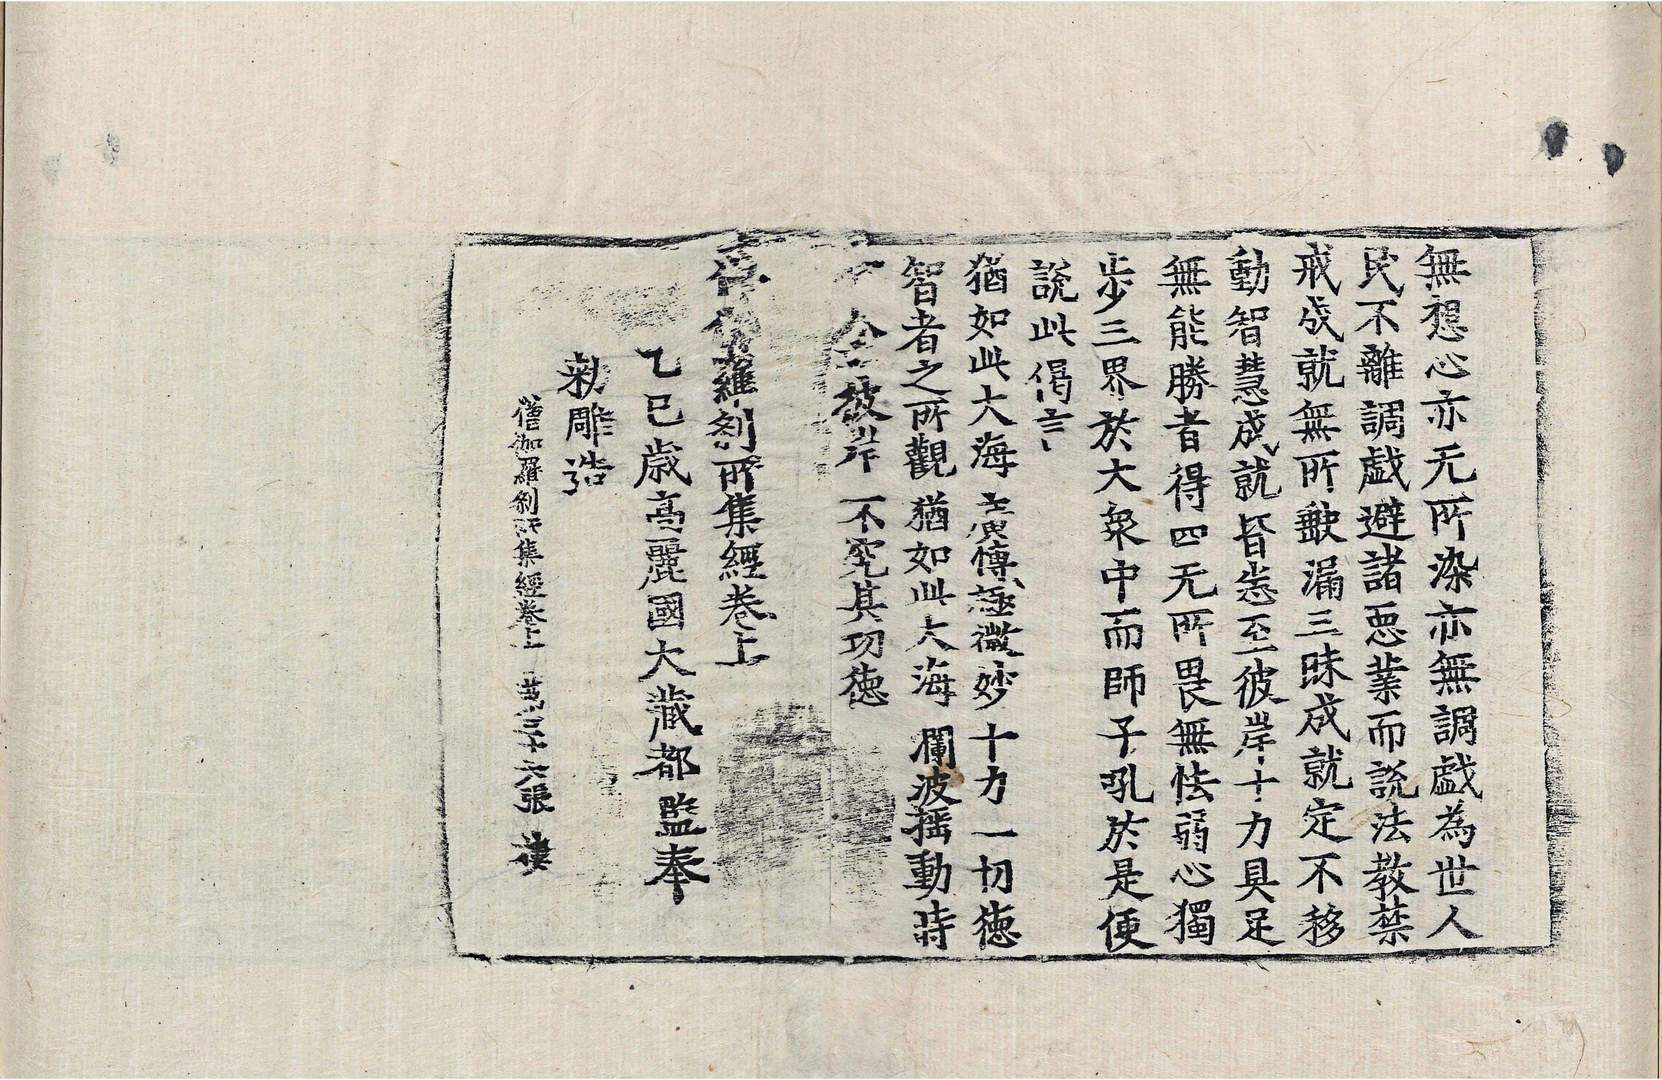 無想心亦无所染亦無調戲為世人
民不離調戲避諸惡業而説法教禁
戒成就無所缺漏三昧成就定不移
動智慧成就皆悉至彼岸十力具足
無能勝者得四无所畏無怯弱心獨
步三界於大衆中而師子吼於是便
説此偈言
猶如此大海 極微妙 十力一切德
智者之所觀 猶如此大海 瀾波揺動時
彼岸 不究其功德
羅刹所集經卷上
乙巳歳高麗國大藏都監奉
勅雕造
僧伽羅刹所集經卷上 第三十六張 樓